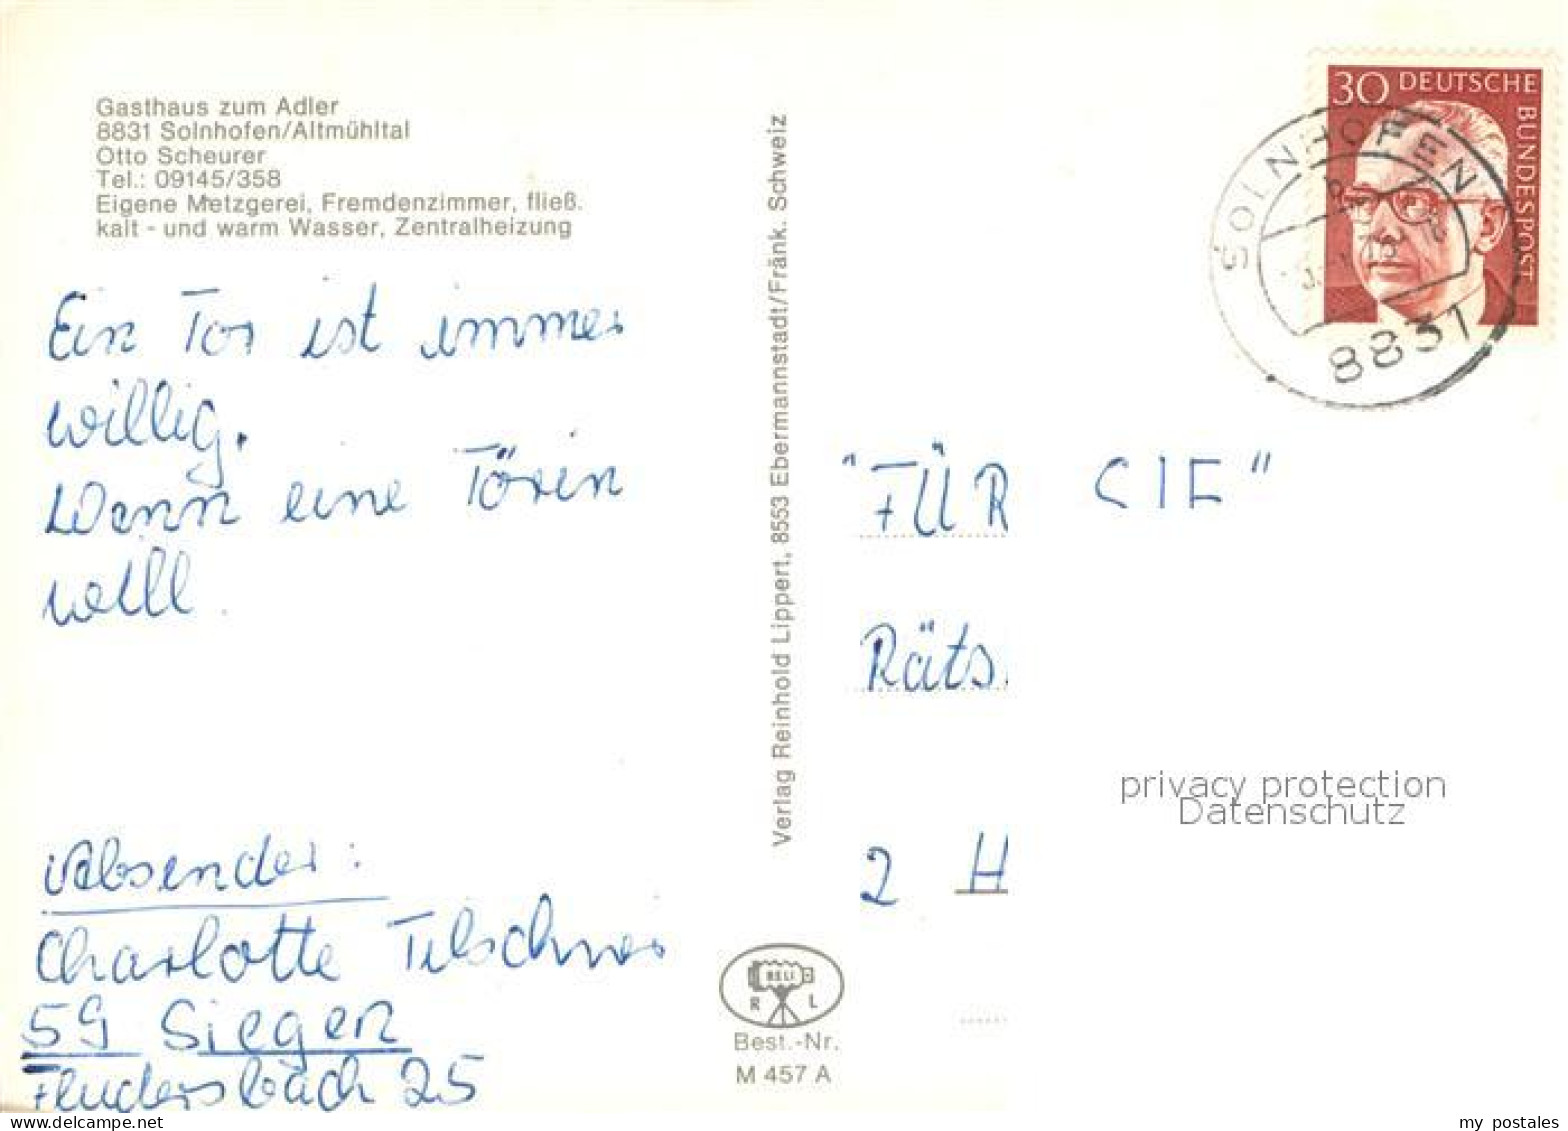 Gasthaus zum Adler
8831 Solnhofen/Altmühltal
Otto Scheurer
Tel.: 09145/358
Eigene Metzgerei, Fremdenzimmer, fließ.
kalt - und warm Wasser, Zentralheizung
Ein Tor ist immer
willig.
Wenn eine Törin
will.
Absender:
Charlotte Tilschner
59 Siegen
Fludersbach 25
Verlag Reinhold Lippert, 8553 Ebermannstadt/Fränk. Schweiz
BELI
R L
Best.-Nr.
M 457 A
30 DEUTSCHE
BUNDESPOST
SOLNHOFEN
8831
"FÜR SIE"
Räts.
2 H
privacy protection
Datenschutz
my postales